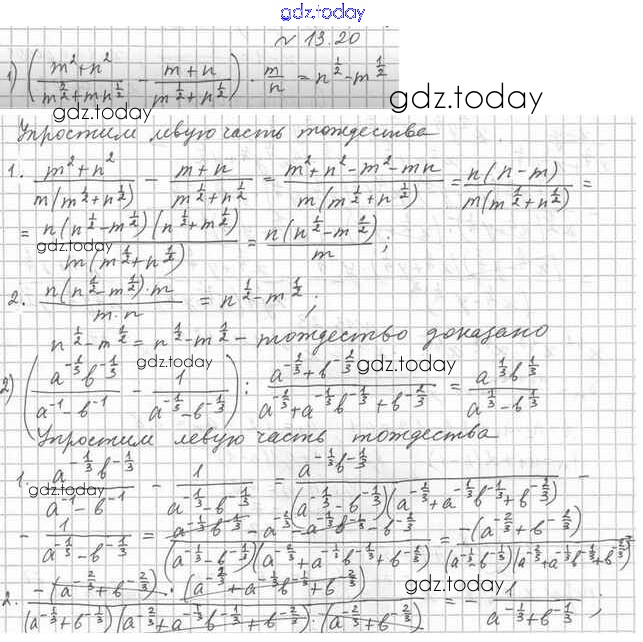 gdz.today
№ 13.20
1) ((m²+n²)/(m^(3/2)+mn^(1/2)) - (m+n)/(m^(1/2)+n^(1/2))) · m/n = n^(1/2)-m^(1/2)
gdz.today
Упростим левую часть тождества
1. (m²+n²)/(m(m^(1/2)+n^(1/2))) - (m+n)/(m^(1/2)+n^(1/2)) = (m²+n²-m²-mn)/(m(m^(1/2)+n^(1/2))) = n(n-m)/(m(m^(1/2)+n^(1/2))) =
= n(n^(1/2)-m^(1/2))(n^(1/2)+m^(1/2))/(m(m^(1/2)+n^(1/2))) = n(n^(1/2)-m^(1/2))/m ;
gdz.today
2. n(n^(1/2)-m^(1/2))·m/(m·n) = n^(1/2)-m^(1/2) ;
n^(1/2)-m^(1/2) = n^(1/2)-m^(1/2) - тождество доказано
gdz.today gdz.today
2) (a^(-1/3)b^(-1/3)/(a^(-1)-b^(-1)) - 1/(a^(-1/3)-b^(-1/3))) : (a^(-2/3)+b^(-2/3))/(a^(-2/3)+a^(-1/3)b^(-1/3)+b^(-2/3)) = a^(1/3)b^(1/3)/(a^(1/3)-b^(1/3))
Упростим левую часть тождества
1. a^(-1/3)b^(-1/3)/(a^(-1)-b^(-1)) - 1/(a^(-1/3)-b^(-1/3)) = a^(-1/3)b^(-1/3)/((a^(-1/3)-b^(-1/3))(a^(-2/3)+a^(-1/3)b^(-1/3)+b^(-2/3))) -
gdz.today gdz.today
- 1/(a^(-1/3)-b^(-1/3)) = (a^(-1/3)b^(-1/3)-a^(-2/3)-a^(-1/3)b^(-1/3)-b^(-2/3))/((a^(-1/3)-b^(-1/3))(a^(-2/3)+a^(-1/3)b^(-1/3)+b^(-2/3))) = -(a^(-2/3)+b^(-2/3))/((a^(-1/3)-b^(-1/3))(a^(-2/3)+a^(-1/3)b^(-1/3)+b^(-2/3)))
2. -(a^(-2/3)+b^(-2/3))·(a^(-2/3)+a^(-1/3)b^(-1/3)+b^(-2/3))/((a^(-1/3)+b^(-1/3))(a^(-2/3)+a^(-1/3)b^(-1/3)+b^(-2/3))·(a^(-2/3)+b^(-2/3))) = - 1/(a^(-1/3)+b^(-1/3)) ;
gdz.today
gdz.today